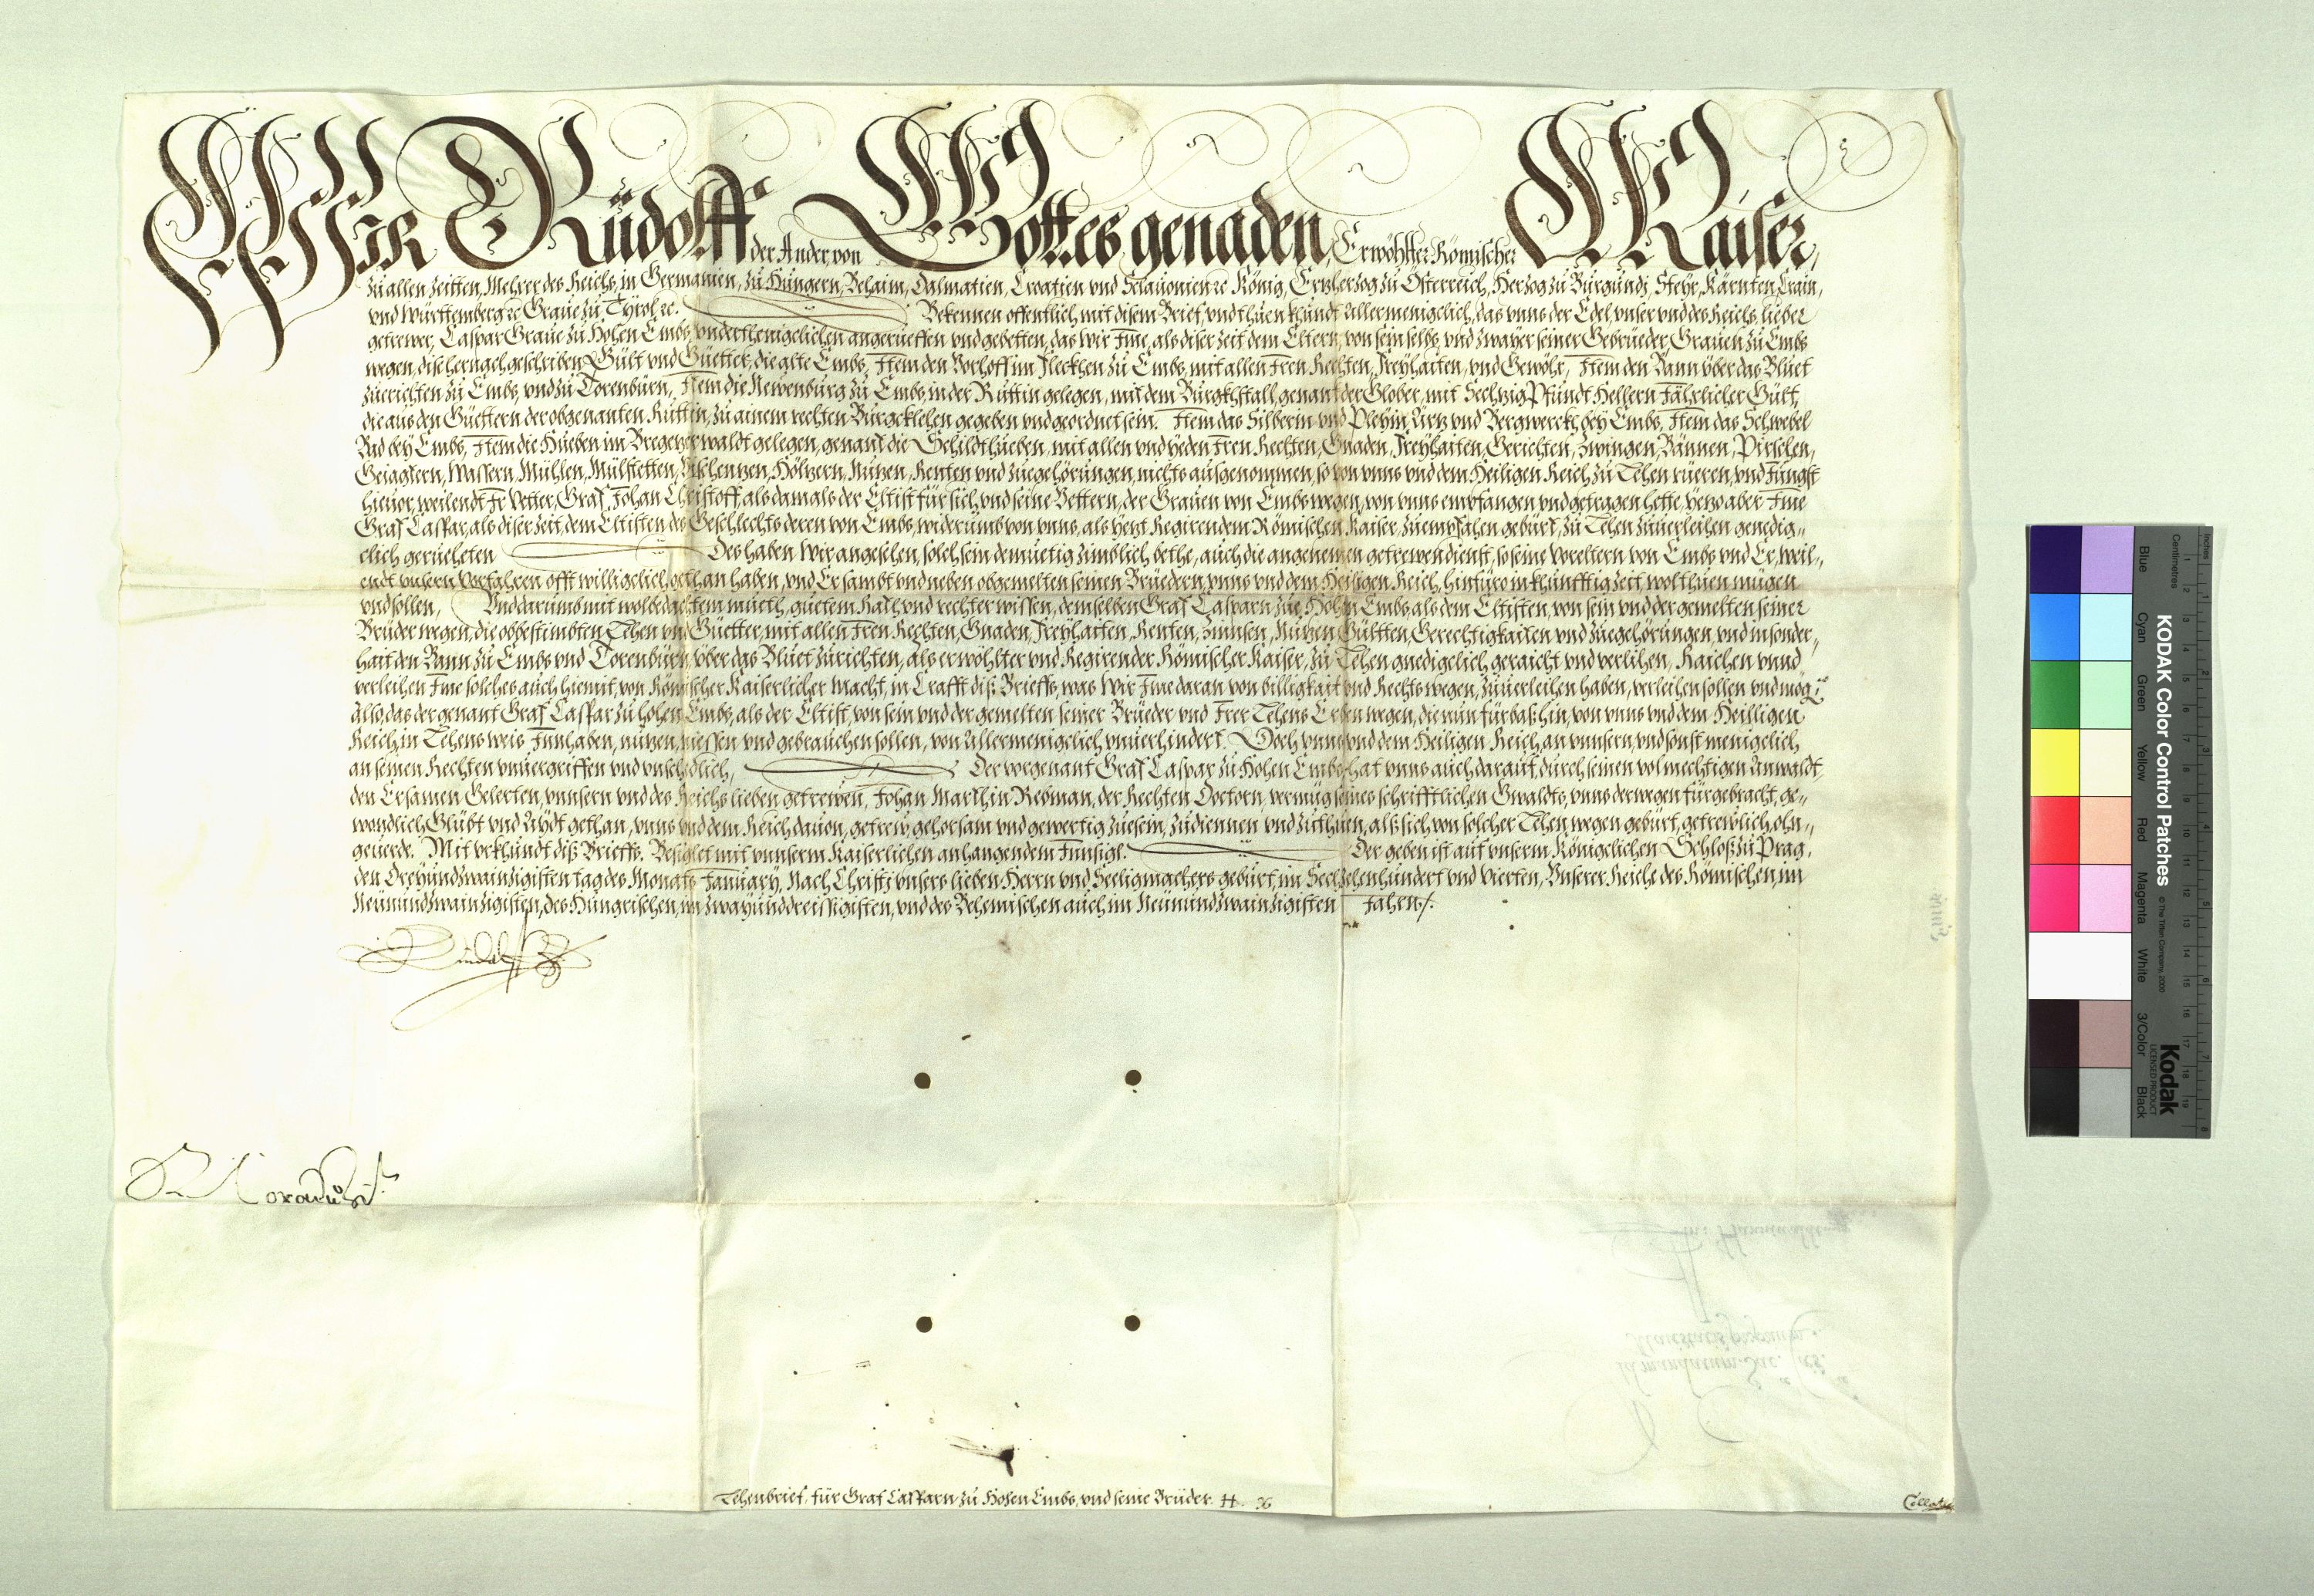 WIR Rüdolff der Ander von Gottes genaden, Erwöhlter Römischer Kaiser,
zu allen zeitten, Mehrer des Reichs, in Germanien, zu Hungern, Behaim, Dalmatien, Croatien vnd Sclauonien ꝛc König, Ertzherzog zu Össterreich, Herzog zu Burgundj, Steyr, Kärnten, Crain,
vnd Württemberg ꝛc Graue zu Tyrol ꝛc. Bekennen offentlich mit disem Brief, vnd thuen khundt Allermenigelich, das vnns der Edel vnser vnd des Reichs lieber
getrewer, Caspar Graue zu Hohen Embs, vnderthenigelichen angerueffen vnd gebetten, das wir Jme, als diser zeit dem Eltern, von sein selbs, vnd zwayer seiner Gebrüeder, Grauen zu Embs
wegen, dise hernach geschriben Gült vnd Güetter, die alte Embs, Jtem den Vorhoff im Fleckhen zu Embs, mit allen Jren Rechten, Freyhaiten, vnd Gewöhr, Jtem den Bann über das Bluet
zurichten zu Embs, vnd zu Torenburn, Jtem die Newenburg zu Embs, in der Rüttin gelegen, mit dem Burgkhstall, genant der Glober, mit Sechzig Pfundt Hellern Jährlicher Gült,
die aus den Güettern der obgenanten Rüttin, zu ainem rechten Burgcklehen gegeben vnd geordnet sein. Jtem das Silberin vnd Pleyin Ärtz vnd Bergwerckh bey Embs, Jtem das Schwebel
Bad bey Embs, Jtem die Hueben im Bregetzerwaldt gelegen, genant die Schildthueben, mit allen vnd yeden Jren Rechten, Gnaden, Freyhaiten, Gerichten, Zwingen, Bännen, Pirschen,
Geiaglern, Wassern, Mühlen, Mülstetten, Vischentzen, Höltzern, Nutzen, Renten vnd zuegehörungen, nichts ausgenommen, so von vnns vnd dem Heiligen Reich zu Lehen rüeren, vnd Jungst
hieuor, weilendt Jr Vetter, Graf Johan Christoff, als damals der Eltist für sich, vnd seine Vettern, der Grauen von Embs wegen, von vnns empfangen vnd getragen hette, yetzo aber Jme
Graf Caspar, als diser zeit, dem Eltisten des Geschlechts deren von Embs, widerumb von vnns, als yetzt Regirendem Römischen Kaiser, zuempfahen gebürt, zu Lehen zuuerleihen genedig-
clich geruecheten Des haben Wir angesehen, solch sein demüetig zimblich bethe, auch die angenemen getrewen dienst, so seine Voreltern von Embs vnd Er, weil-
endt vnsern Vorfahren offt williglich gethan haben, vnd Er sambt vnd neben obgemelten seinen Brüedern, vnns vnd dem Heiligen Reich, hinfüro in khünfftig zeit, wol thuen mügen
vnd sollen, Vnd darumb mit wolbedachtem mueth, guetem Rath vnd rechter wissen, demselben Graf Casparn zue Hohen Embs als dem Eltisten, von sein vnd der gemelten seiner
Brüder wegen, die obbestimbten Lehen vnd Güetter, mit allen Jren Rechten, Gnaden, Freyhaiten, Renten, Zinnsen, Nutzen Gültten, Gerechtigkaiten vnd zuegehörungen, vnd insonder-
hait den Bann zu Embs vnd Torenburn, über das Bluet zurichten, als erwöhlter vnd Regirender Römischer Kaiser, zu Lehen gnedigelich geraicht vnd verlihen, Raichen vnnd
verleihen Jme solches auch hiemit, von Römischer Kaiserlicher Macht, in Crafft diß Brieffs, was Wir Jme daran von billigkait vnd Rechts wegen, zuuerleihen haben, verleihen sollen vnd mögen
Also, das der genant Graf Caspar zu Hohen Embs, als der Eltist, von sein vnd der gemelten seiner Brüeder vnd Jrer Lehens Erben wegen, die nun fürbaß hin, von vnns vnd dem Heilligen
Reich, in Lehens weis Jnnhaben, nutzen, niessen vnd gebrauchen sollen, von Allermenigelich vnuerhindert. Doch vnns vnd dem Heiligen Reich, an vnnsern, vnd sonst menigelich
an seinen Rechten vnuergriffen vnd vnschedlich, Der vorgenant Graf Caspar zu Hohen Embs hat vnns auch darauf, durch seinen volmechtigen Anwaldt,
den Ersamen Gelerten, vnnsern vnd des Reichs lieben getrewen, Johan Marthin Rebman, der Rechten Doctorn, vermüg seines schrifftlichen Gwaldts, vnns derwegen fürgebracht, ge-
wondlich Glübt vnd Aydt gethan, vnns vnd dem Reich dauon, getrew, gehorsam vnd gewertig zuesein, zudiennen vnd zuthuen, alß sich von solcher Lehen wegen gebürt, getrewlich, ohn-
geuerde. Mit vrkhundt diß Brieffs. Besiglet mit vnnserm Kaiserlichen anhangendem Jnnsigl. Der geben ist auf vnserm Königelichen Schloß zu Prag,
den Dreyundzwainzigisten tag des Monats January, Nach Christj vnsers lieben Herrn vnd Seeligmachers geburt, im Sechzehenhundert vnd Vierten, Vnserer Reiche des Römischen, im
Neünundzwainzigisten, des Hungrischen, im zwayunddreissigisten, vnd des Behemischen auch im Neünundzwainzigisten Jahrn./.
Rudolff
Lehenbrief, für Graf Casparn zu Hohen Embs, vnd seine Brüder.
KODAK Color Control Patches
© The Tiffen Company, 2000
Kodak
LICENSED PRODUCT
Inches
Centimetres
Blue Cyan Green Yellow Red Magenta White 3/Color Black